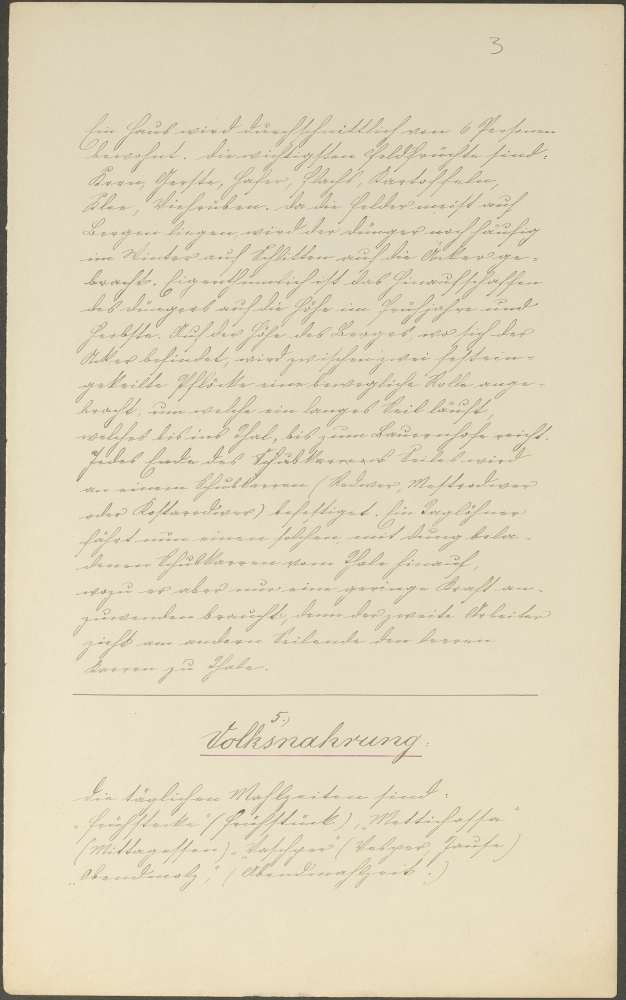 3
Ein Haus wird durchschnittlich von 6 Personen
bewohnt. Die wichtigsten Feldfrüchte sind:
Korn, Gerste, Hafer, Flachs, Kartoffeln,
Klee, Viehrüben. Da die Felder meist auf
Bergen liegen, wird der Dünger noch häufig
im Winter auf Schlitten auf die Äcker ge-
bracht. Eigenthümlich ist das Hinaufschaffen
des Düngers auf die Höhe im Frühjahre und
Herbste. Auf der Höhe des Berges, wo sich der
Acker befindet, wird zwischen zwei fest ein-
gekeilte Pflöcke eine bewegliche Rolle ange-
bracht, um welche ein langes Seil läuft,
welches bis ins Thal, bis zum Bauernhofe reicht.
Jedes Ende des Seiles wird
an einem Schubkarren (Radwer, Mestrodwer
oder Kostarodwer) befestiget. Ein Taglöhner
fährt nun einen solchen mit Dung bela-
denen Schubkarren vom Thale hinauf,
wozu er aber nur eine geringe Kraft an-
zuwenden braucht, denn der zweite Arbeiter
zieht am andern Seilende den leeren
Karren zu Thale.
5.)
Volksnahrung.
Die täglichen Mahlzeiten sind:
"Frühstecke" (Frühstück), "Mettichessa"
(Mittagessen), "Vaschper" (Vesper, Jause)
"Obendmolz", (Abendmahlzeit.)